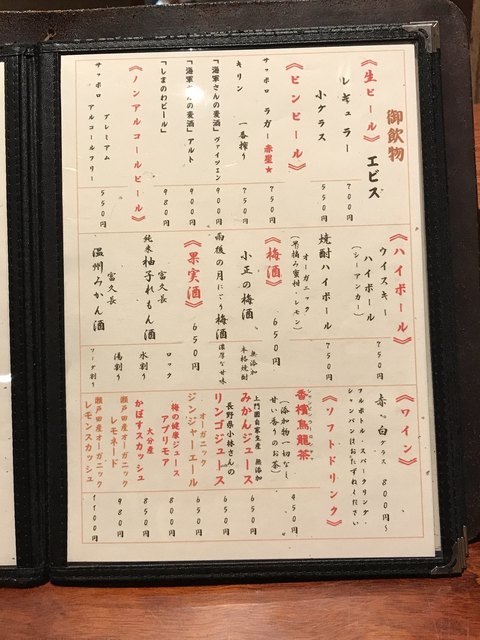 御飲物
《生ビール》 エビス
レギュラー 700円
小グラス 550円
《ビンビール》
サッポロ ラガー赤星★ 750円
キリン 一番搾り 750円
「海軍さんの麦酒」ヴァイツェン 900円
「海軍さんの麦酒」アルト 900円
「しまのわビール」 980円
《ノンアルコールビール》
サッポロ プレミアム
アルコールフリー 550円
《ハイボール》
ウイスキー
ハイボール 750円
(シーアンカー)
焼酎ハイボール 750円
オーガニック
(早摘み蜜柑・レモン)
《梅酒》 650円
小正の梅酒 無添加
本格焼酎
雨後の月にごり梅酒 濃厚な甘味
《果実酒》 650円
富久長
純米柚子れもん酒
富久長
温州みかん酒
ロック
水割り
湯割り
ソーダ割り
《ワイン》
赤・白 グラス 800円~
フルボトル・スパークリング・
シャンパンはおたずねください
《ソフトドリンク》
香檳烏龍茶 450円
シャンピンウーロン
(添加物一切なし
甘い香りのお茶)
上門園自家生産 無添加
みかんジュース 650円
長野県小林さんの
リンゴジュース 650円
オーガニック
ジンジャーエール 650円
梅の健康ジュース
アプリモア 800円
大分産
かぼすスカッシュ 850円
瀬戸田産オーガニック
レモネード 980円
瀬戸田産オーガニック
レモンスカッシュ 1100円